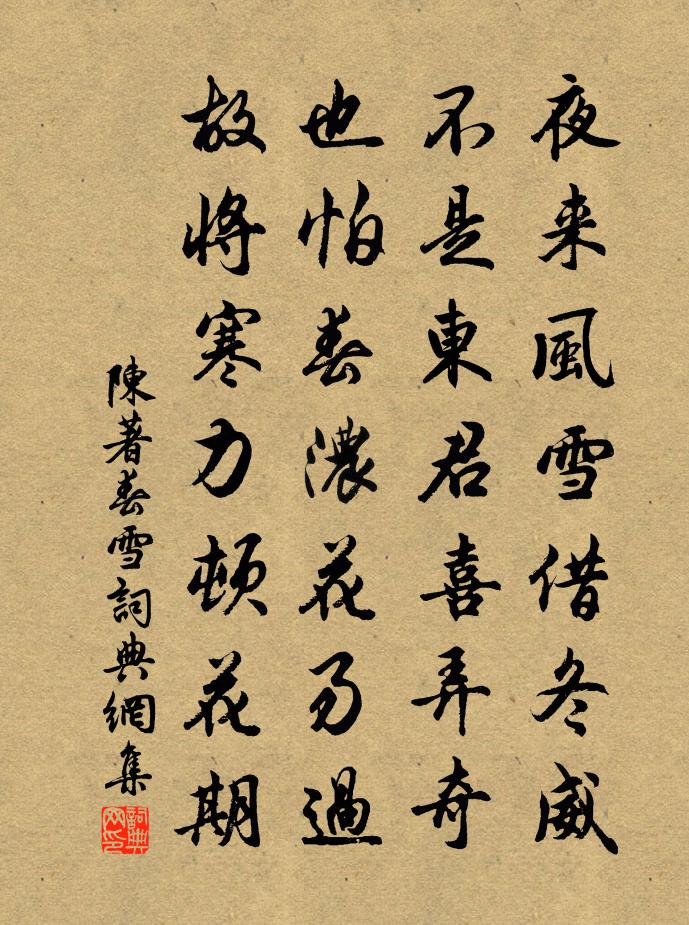 夜来風雪借冬威
不是東君喜弄奇
也怕春濃花易過
故將寒力頓花期
陳著春雪詞典網集
詞典网印